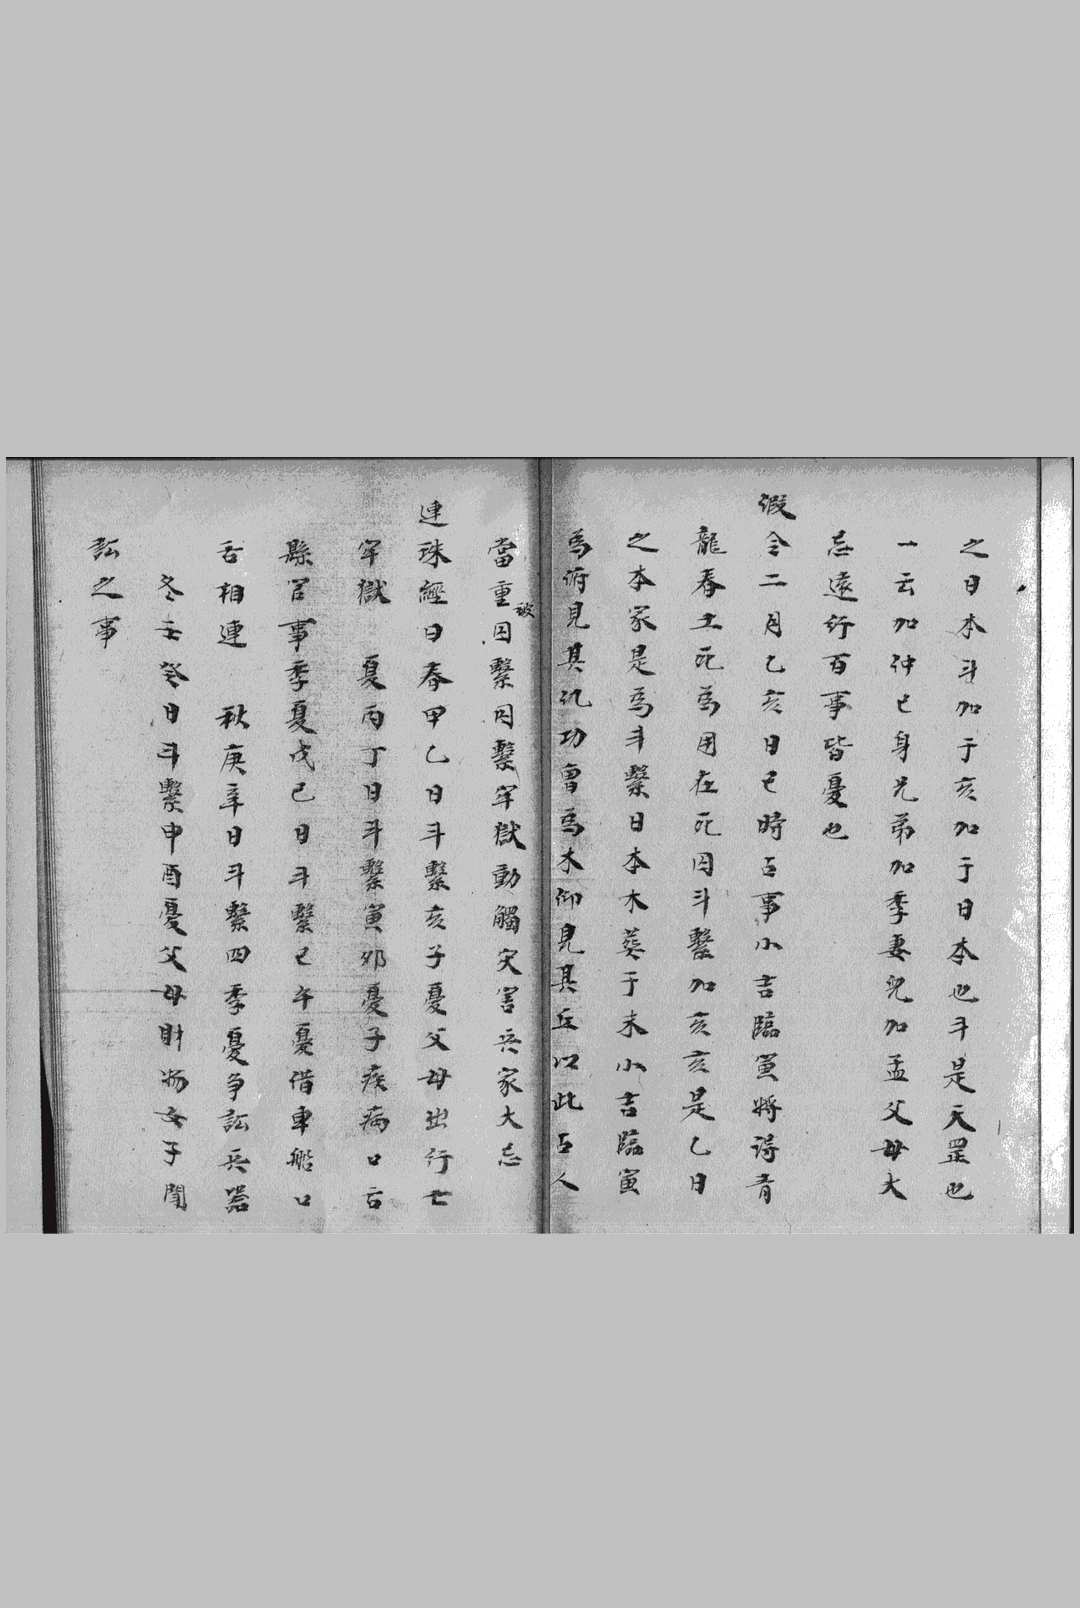 之日本斗加于亥加于日本也斗是天罡也
一云加仲已身兄弟加季妻兒加孟父母大
忌遠行百事皆憂也
假令二月乙亥日巳時占事小吉臨寅將得青
龍春土死為用在死囚斗繫加亥亥是乙日
之本家是為斗繫日本木葵于未小吉臨寅
為俯見其仇功曹為木仰見其丘以此占人
當重囚繫被囚繫牢獄動觸灾害兵家大忌
連珠經曰春甲乙日斗繫亥子憂父母出行亡
牢獄 夏丙丁日斗繫寅卯憂子疾病口舌
縣官事季夏戊己日斗繫巳午憂借車船口
舌相連 秋庚辛日斗繫四季憂争訟兵器
冬壬癸日斗繫申酉憂父母財物女子聞
訟之事